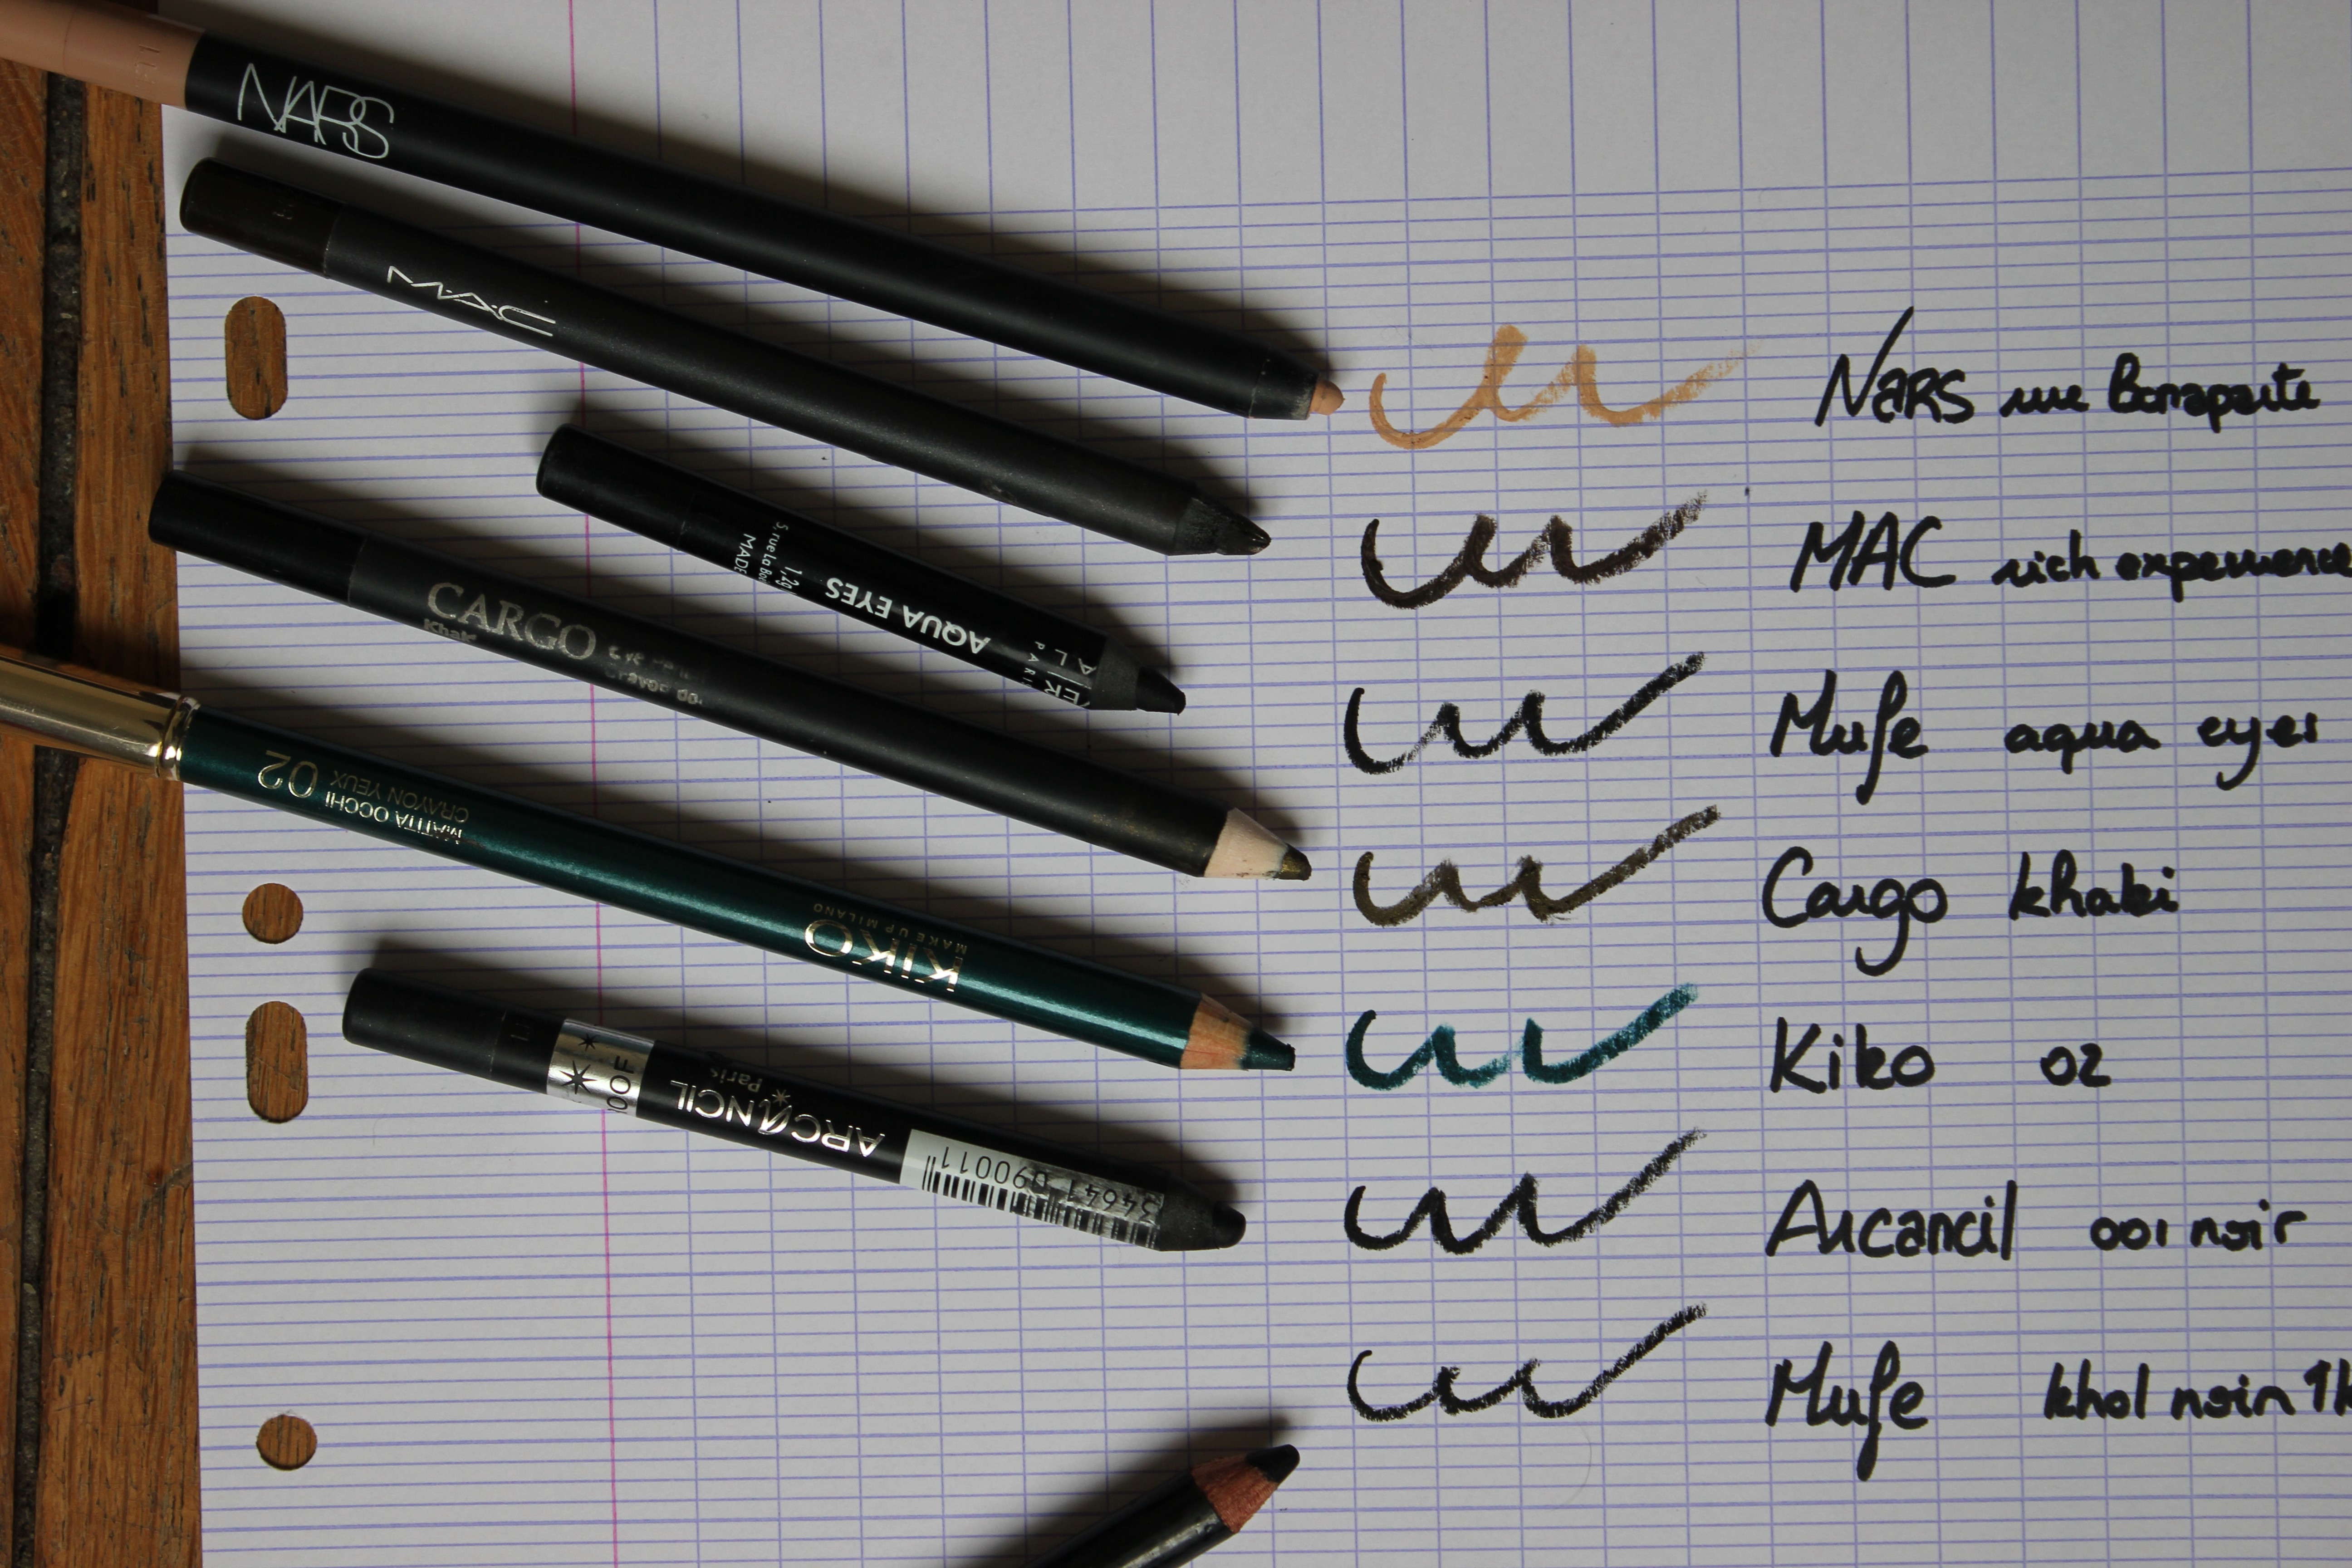 NARS
MAC
5, rue La Boé
MADE
1,2g
AQUA EYES
CARGO
Khaki
MATITA OCCHI
CRAYON YEUX
02
KIKO
MAKE UP MILANO
OOF
ARCANCIL
Paris
34641 090011
NARS rue Bonaparte
MAC rich experience
Mufe aqua eyes
Cargo khaki
Kiko 02
Arcancil 001 noir
Mufe khol noir 1k